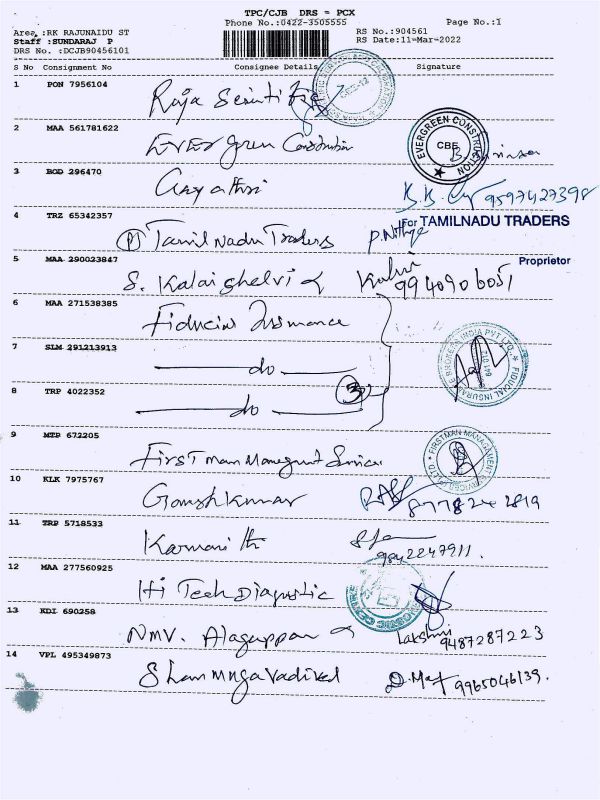 TPC/CJB DRS = PCX
Phone No.:0422-3505555
Page No.:1
Area :RK RAJUNAIDU ST
RS No.:904561
Staff :SUNDARAJ P
RS Date:11-Mar-2022
DRS No. :DCJB90456101
S No Consignment No Consignee Details Signature
1 PON 7956104 Raja
2 MAA 561781622 Evergreen Construction
EVERGREEN CONSTRUCTION
CBE
3 BOD 296470 Gayathri
9597427398
4 TRZ 65342357 Tamil Nadu Traders P. Nithya
For TAMILNADU TRADERS
Proprietor
5 MAA 290023847 S. Kalaishelvi
9940906051
6 MAA 271538385 Fiducial Insurance
7 SLM 291213913 do
8 TRP 4022352 do
3
FIDUCIAL INSURANCE BROKERS INDIA PVT LTD.
641 012
9 MTP 672205 First man Management Services
FIRSTMAN MANAGEMENT SERVICES P LTD
10 KLK 7975767 Gomesh Kumar
11 TRP 5718533
9842247911.
12 MAA 277560925 Hi Tech Diagnostic
13 KDI 690258 NMV. Alagappan
Lakshmi
9487287223
14 VPL 495349873 Shanmugavadivel
9965046139.